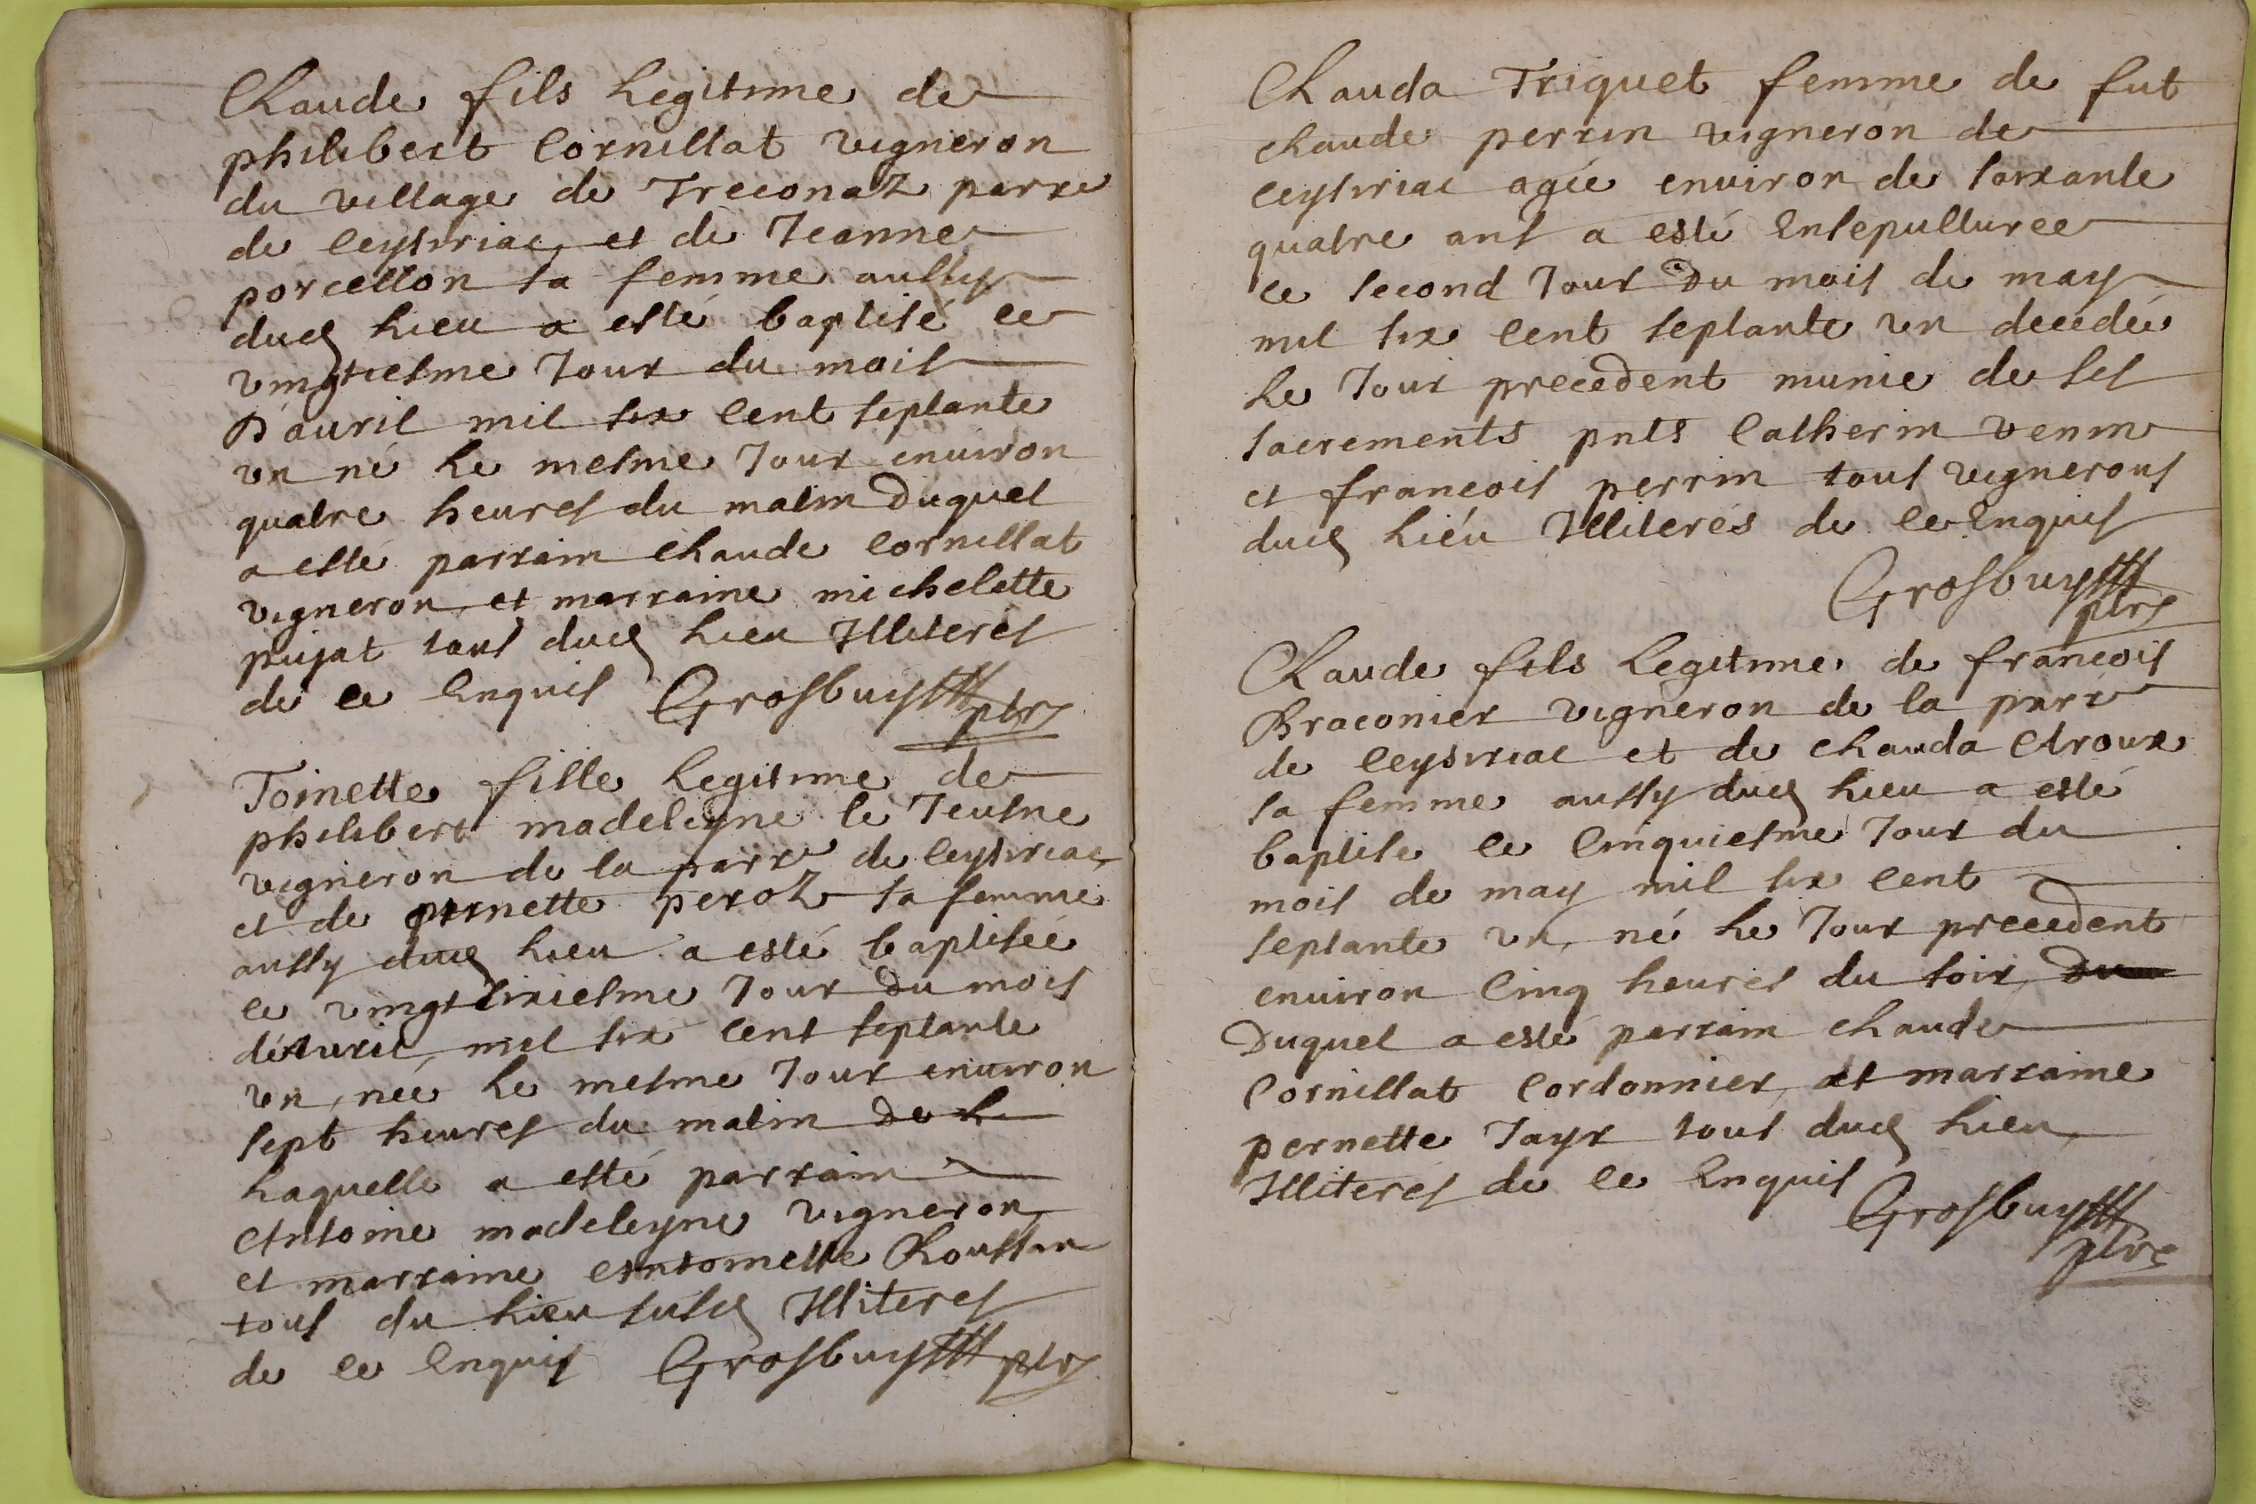 Claude fils legitime de
philibert Cornillat vigneron
du village de Treconaz parre
de Ceysiriac et de Jeanne
porcellon sa femme aussy
dud lieu a esté baptisé ce
vingtiesme Jour du mois
D'auril mil six Cent septante
vn né le mesme Jour enuiron
quatre heures du matin Duquel
a esté parrain Claude Cornillat
vigneron et marraine michelette
pujat tous dud lieu Illiterés
de ce Enquis Grosbuys ptre
Toinette fille legitime de
philibert madeleyne le Jeusne
vigneron de la parre de Ceysiriac
et de pernette peroz sa femme
aussy dud lieu a esté baptiseé
ce vingtsixiesme Jour du mois
d'Auril mil six Cent septante
vn, née le mesme Jour enuiron
sept heures du matin De l
Laquelle a esté parrain
Antoine madeleyne vigneron
et marraine Antoinette Roussan
tous du lieu susd Illiteres
de ce Enquis Grosbuys ptre
Clauda Triquet femme de fut
claude perrin vigneron de
Ceysiriac agée enuiron de soixante
quatre ans a esté Ensepulturee
ce second Jour Du mois de may
mil six Cent septante vn decedée
le Jour precedent munie de ses
sacrements pnts Catherin venin
et francois perrin tous vignerons
dud liéu Illiterés de ce Enquis
Grosbuys
ptre
Claude fils legitime de francois
Braconier vigneron de la parre
de Ceysiriac et de Clauda Aroux
sa femme aussy dud lieu a esté
baptise ce Cinquiesme Jour du
mois de may mil six Cent
septante vn, né le Jour precedent
enuiron Cinq heures du soir Du
Duquel a esté parrain claude
Cornillat Cordonnier et marraine
pernette Jayr tous dud lieu
Illiteres de ce Enquis
Grosbuys
ptre